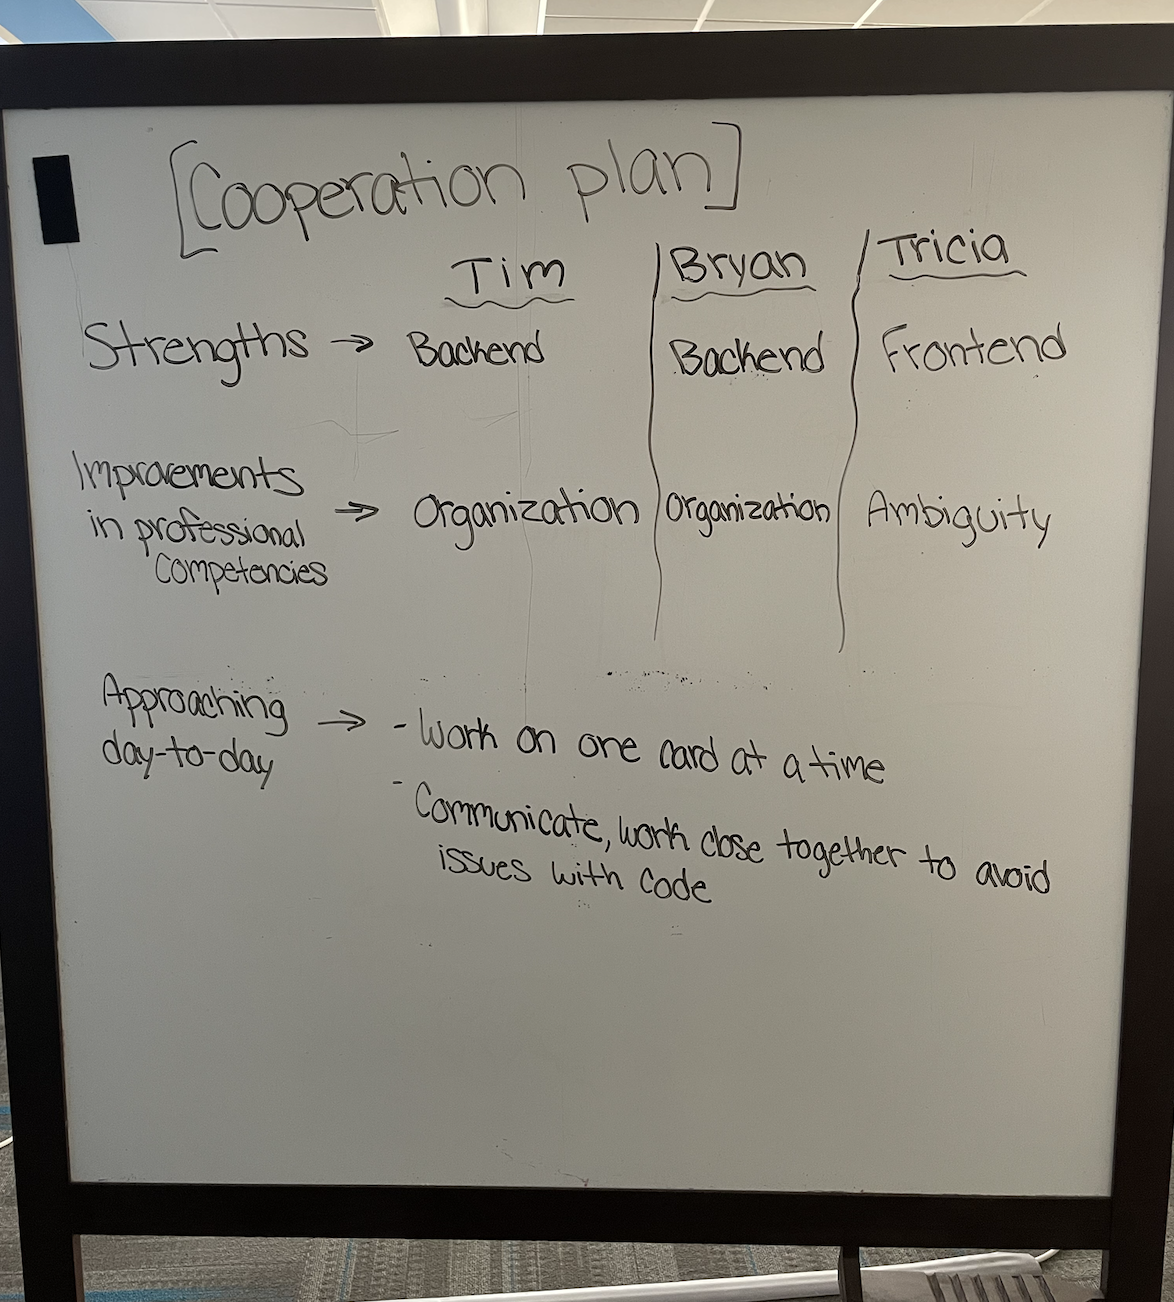 [Cooperation plan]
Tim Bryan Tricia
Strengths → Backend Backend Frontend
Improvements
in professional → Organization Organization Ambiguity
Competencies
Approaching → - Work on one card at a time
day-to-day
- Communicate, work close together to avoid
issues with code